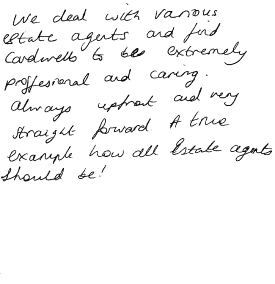 We deal with various
estate agents and find
Cardwells to be extremely
proffesional and caring.
Always upfront and very
straight forward A true
example how all Estate agents
should be!